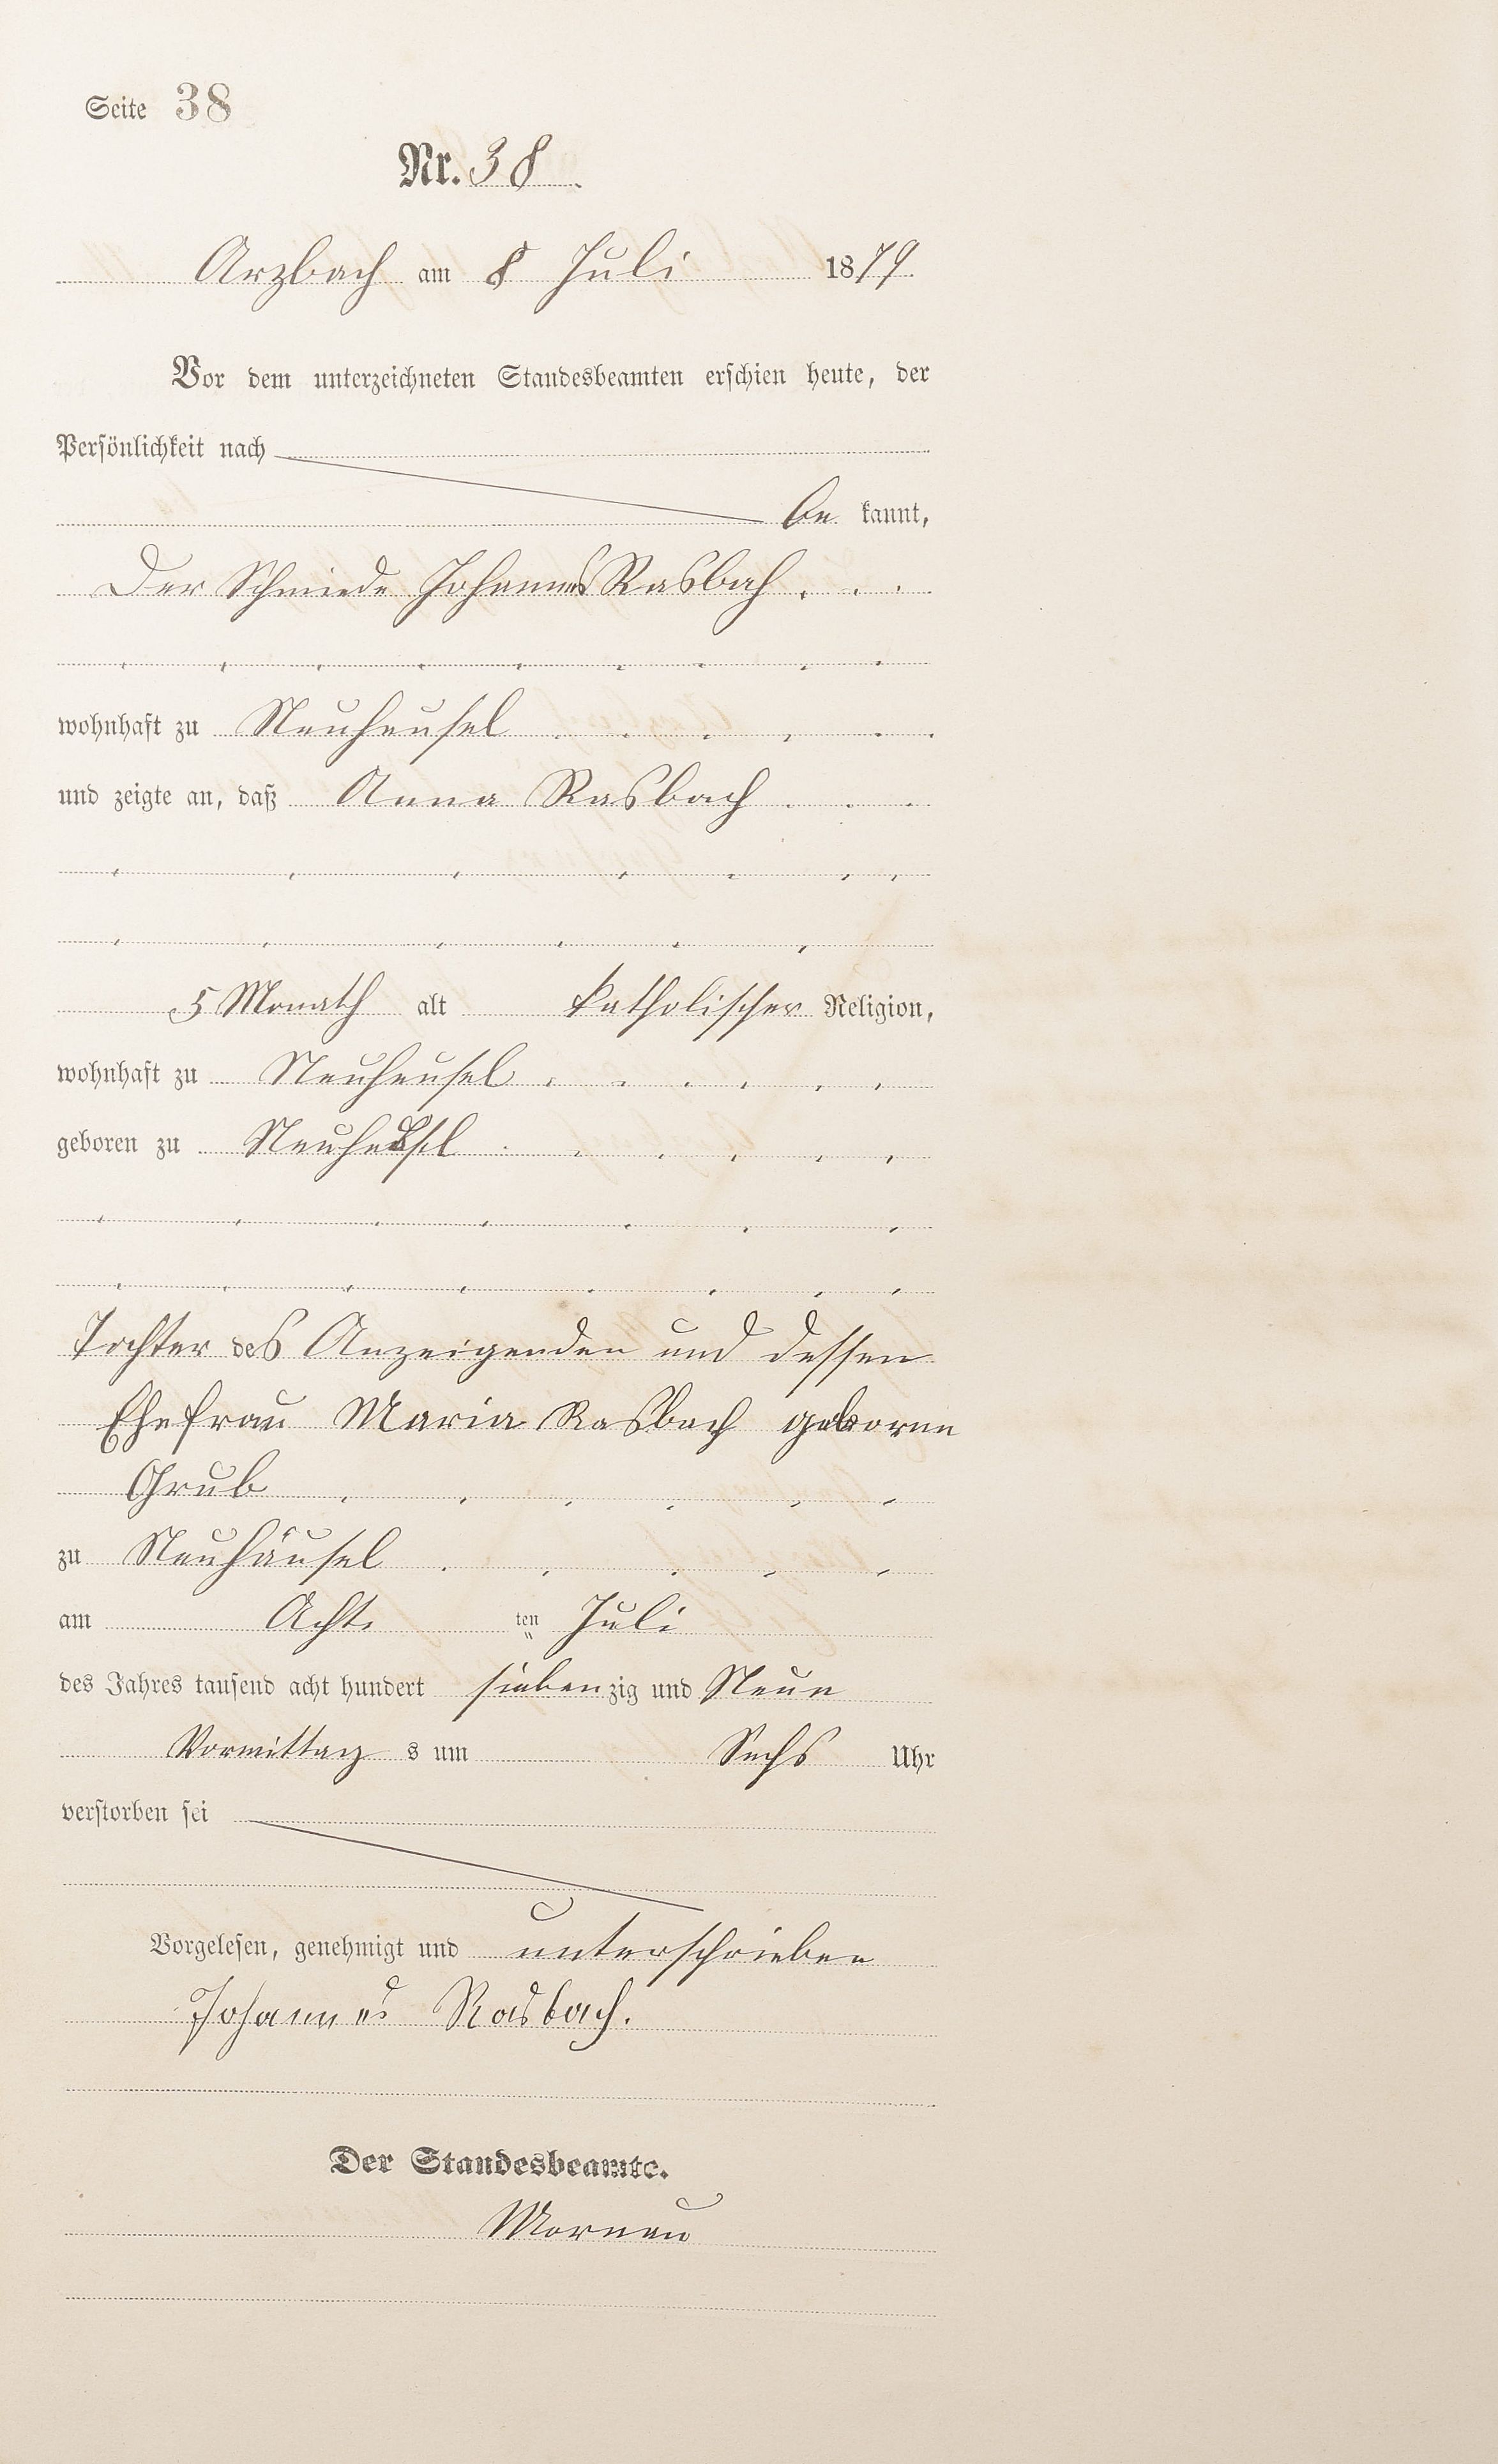 Seite 38
Nr. 38.
Arzbach am 8 Juli 1879.
Vor dem unterzeichneten Standesbeamten erschien heute, der
Persönlichkeit nach
be kannt,
Der Schmiede Johannes Rasbach
wohnhaft zu Neuheusel
und zeigte an, daß Anna Rasbach
5 Monath alt katholischer Religion,
wohnhaft zu Neuheusel
geboren zu Neuheusel
Tochter des Anzeigenden und dessen
Ehefrau Maria Rasbach geborene
Grub
zu Neuhäusel
am Achte ten Juli
des Jahres tausend acht hundert siebenzig und Neun
Vormittag s um Sechs Uhr
verstorben sei
Vorgelesen, genehmigt und unterschrieben
Johannes Rasbach.
Der Standesbeamte.
Mornau